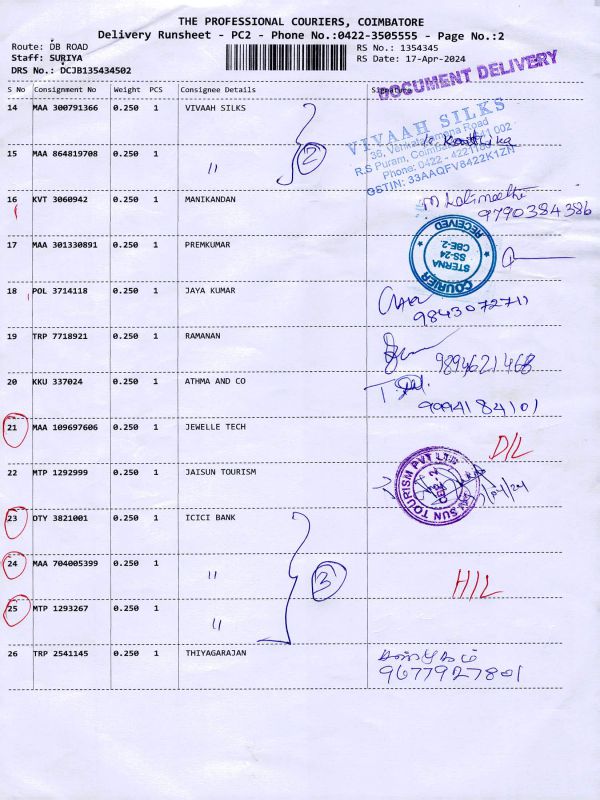 THE PROFESSIONAL COURIERS, COIMBATORE
Delivery Runsheet - PC2 - Phone No.:0422-3505555 - Page No.:2
Route: DB ROAD
RS No.: 1354345
Staff: SURIYA
RS Date: 17-Apr-2024
DRS No.: DCJB135434502
DOCUMENT DELIVERY
S No Consignment No Weight PCS Consignee Details Signature
14 MAA 300791366 0.250 1 VIVAAH SILKS
VIVAAH SILKS
36, Venkataramana Road
R.S Puram, Coimbatore 641 002
Phone: 0422 - 4221
GSTIN: 33AAQFV8422K1ZN
15 MAA 864819708 0.250 1 "
2
16 KVT 3060942 0.250 1 MANIKANDAN
9790384386
17 MAA 301330891 0.250 1 PREMKUMAR
STERNA
SS-24
CBE-2.
COURIER
RECEIVED
18 POL 3714118 0.250 1 JAYA KUMAR
9843072711
19 TRP 7718921 0.250 1 RAMANAN
9894621468
20 KKU 337024 0.250 1 ATHMA AND CO
9094184101
21 MAA 109697606 0.250 1 JEWELLE TECH
D/L
22 MTP 1292999 0.250 1 JAISUN TOURISM
SUN TOURISM PVT LTD
CBE. 2
23 DTY 3821001 0.250 1 ICICI BANK
24 MAA 704005399 0.250 1 "
3
H/L
25 MTP 1293267 0.250 1 "
26 TRP 2541145 0.250 1 THIYAGARAJAN
9677927801